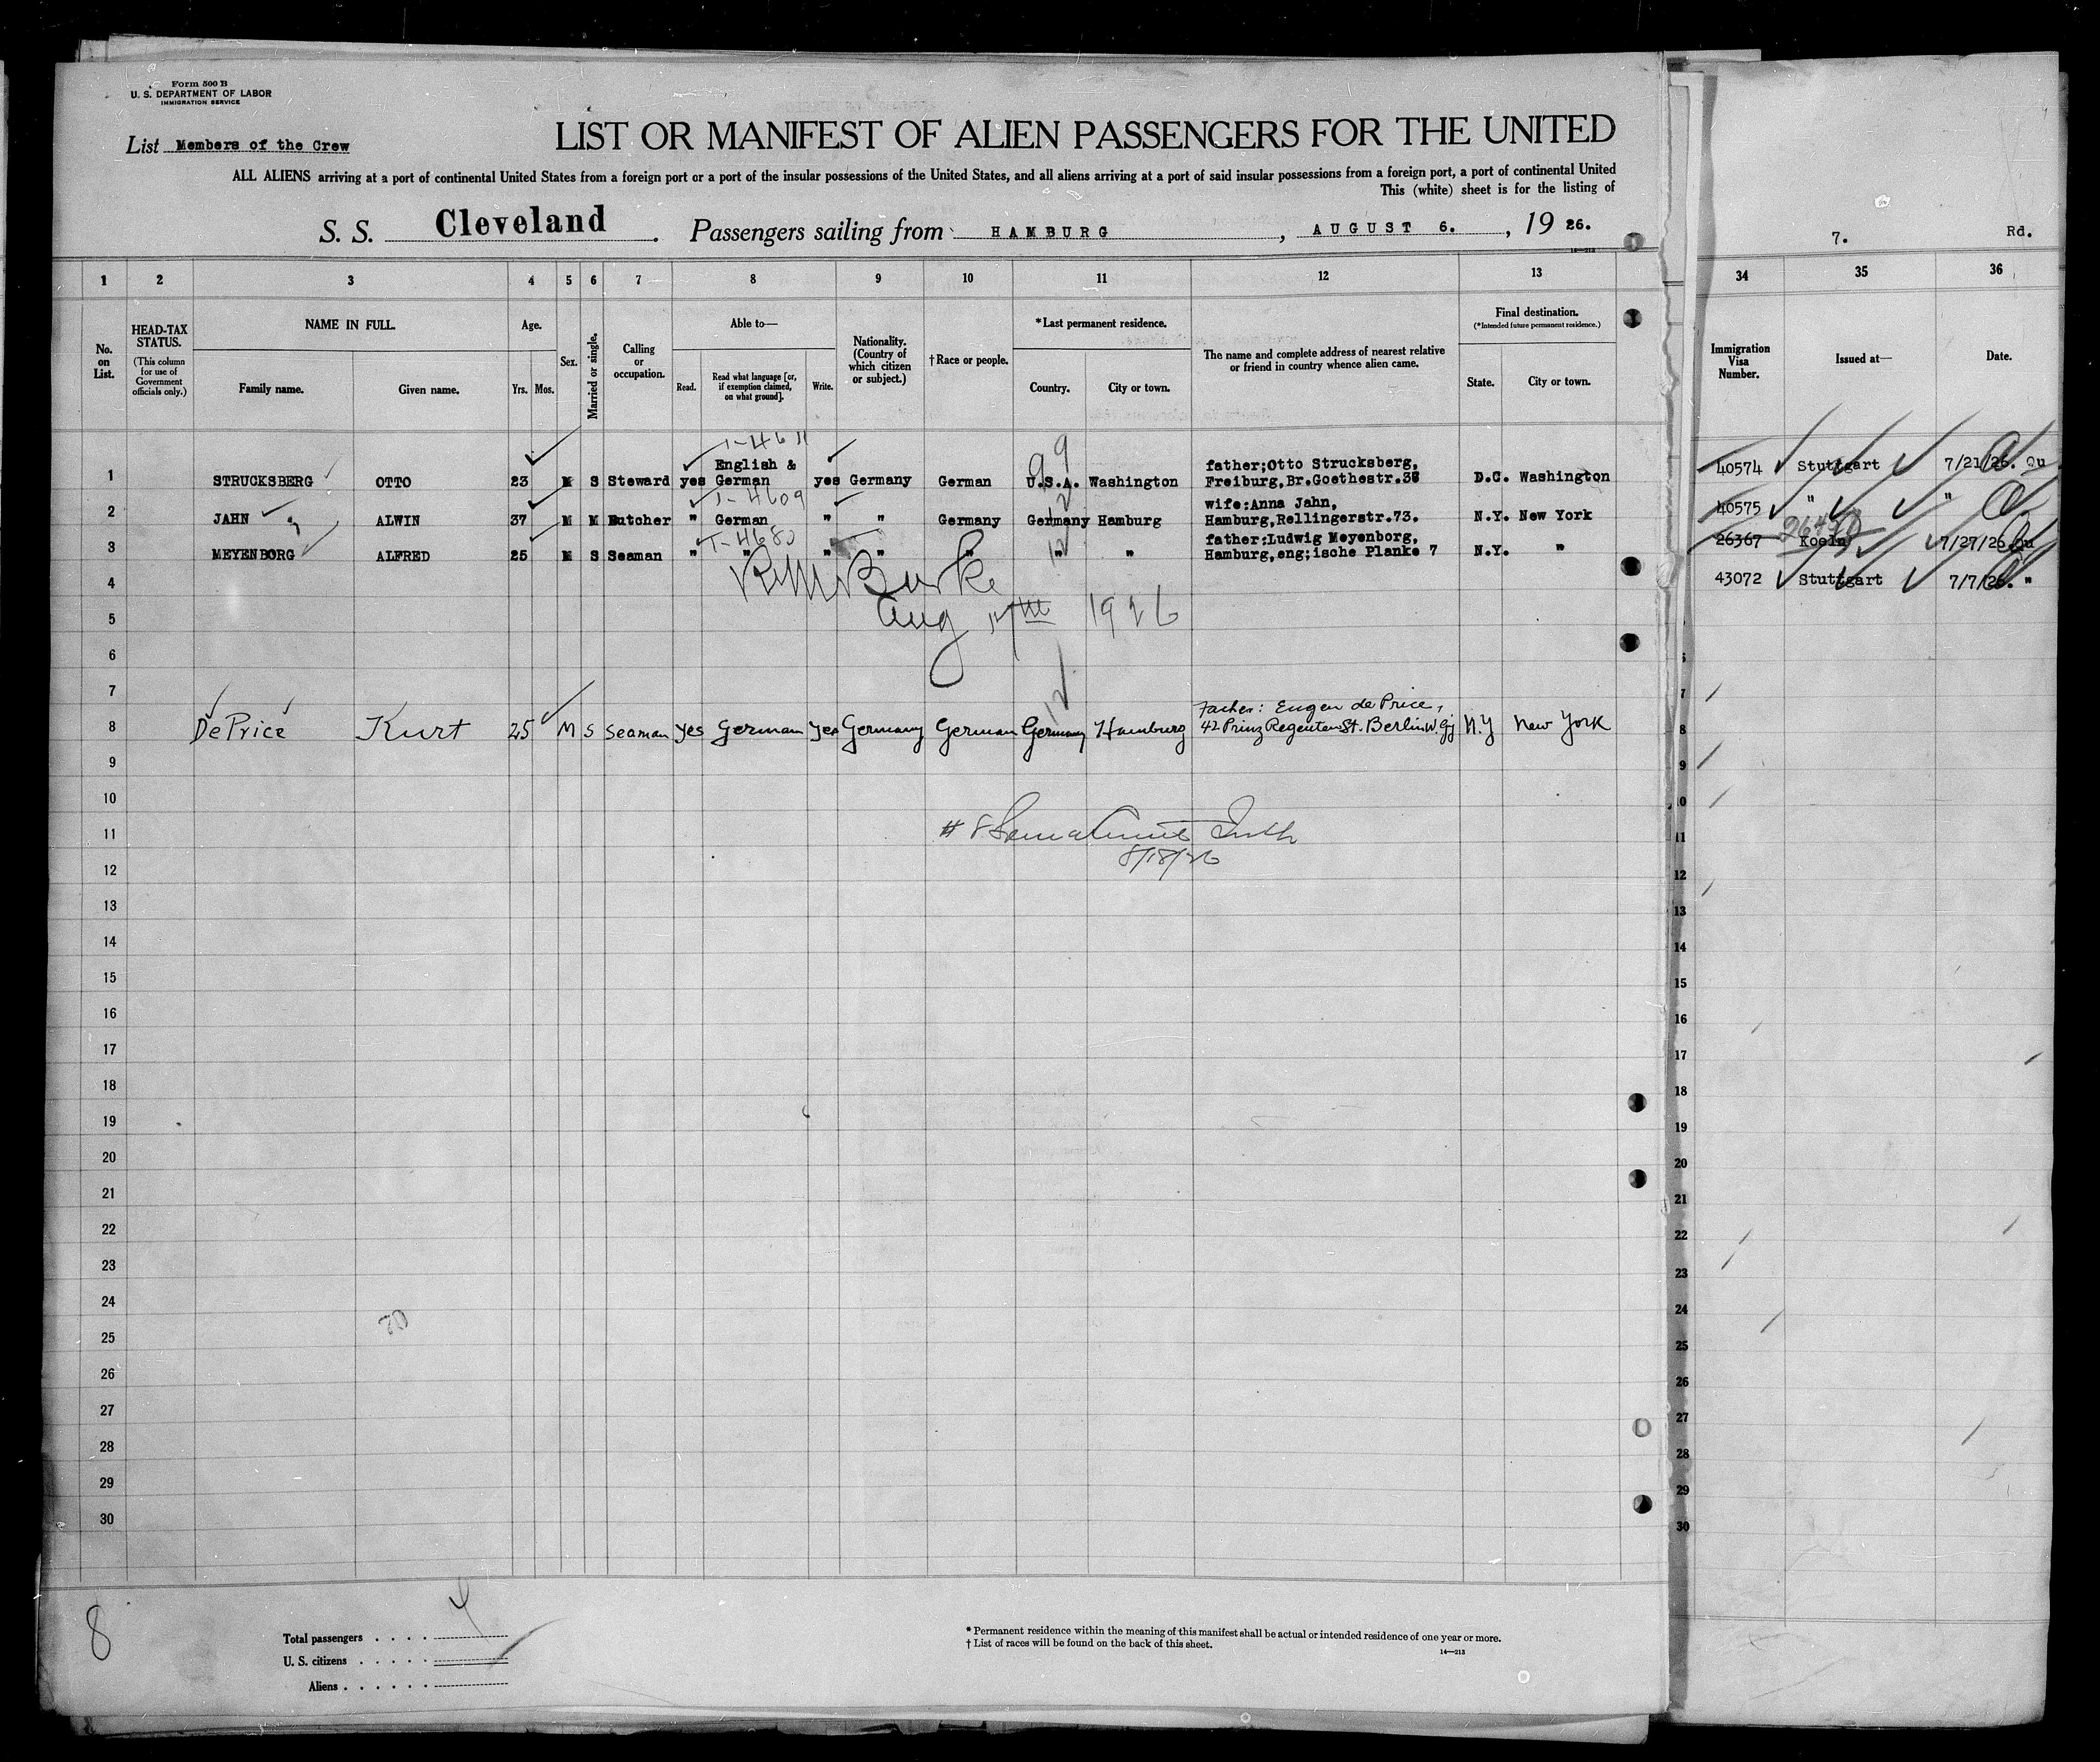 Form 500 B
U. S. DEPARTMENT OF LABOR
IMMIGRATION SERVICE
List Members of the Crew
LIST OR MANIFEST OF ALIEN PASSENGERS FOR THE UNITED
ALL ALIENS arriving at a port of continental United States from a foreign port or a port of the insular possessions of the United States, and all aliens arriving at a port of said insular possessions from a foreign port, a port of continental United
This (white) sheet is for the listing of
S. S. Cleveland. Passengers sailing from HAMBURG, AUGUST 6., 19 26.
7. Rd.
1 2 3 4 5 6 7 8 9 10 11 12 13 34 35 36
No. on List.
HEAD-TAX STATUS.
(This column for use of Government officials only.)
NAME IN FULL.
Family name. Given name.
Age.
Yrs. Mos.
Sex.
Married or single.
Calling or occupation.
Able to—
Read. Read what language [or, if exemption claimed, on what ground]. Write.
Nationality. (Country of which citizen or subject.)
†Race or people.
*Last permanent residence.
Country. City or town.
The name and complete address of nearest relative or friend in country whence alien came.
Final destination.
(*Intended future permanent residence.)
State. City or town.
Immigration Visa Number.
Issued at—
Date.
1-4611
99
1 STRUCKSBERG OTTO 23 M S Steward yes English & German yes Germany German U.S.A. Washington father;Otto Strucksberg, Freiburg,Br.Goethestr.38 D.C. Washington 40574 Stuttgart 7/21/26. Qu
1-4609
2 JAHN ALWIN 37 M M Butcher " German " " Germany Germany Hamburg wife:Anna Jahn, Hamburg,Rellingerstr.73. N.Y. New York 40575 " "
T-4680
12
3 MEYENBORG ALFRED 25 M S Seaman " " " " " " " father:Ludwig Meyenborg, Hamburg,eng;ische Planke 7 N.Y. " 26367 Koeln 7/27/26 Qu
4 43072 Stuttgart 7/7/26. "
Burke
5 Aug 17th 1926
6
7
12
8 De Price Kurt 25 M S Seaman yes German yes Germany German Germany Hamburg Father: Eugen de Price, 42 Prinz Regenten St. Berlin W. N.Y New York
9
10
11 # 8
8/18/26
12
13
14
15
16
17
18
19
20
21
22
23
24
20
25
26
27
28
29
30
8
4
Total passengers
U. S. citizens
Aliens
* Permanent residence within the meaning of this manifest shall be actual or intended residence of one year or more.
† List of races will be found on the back of this sheet.
14—213